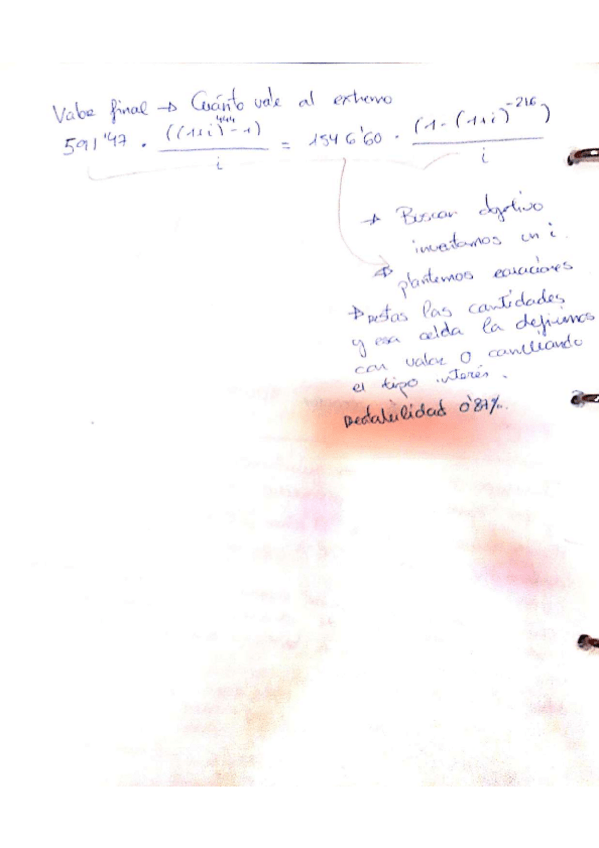 Valor final → Cuánto vale al extremo
591'47 · ((1+i)^444 - 1) / i = 1546'60 · (1 - (1+i)^-216) / i
→ Buscar objetivo
inventamos un i.
→ plantemos ecuaciones
→ restas las cantidades
y esa celda la definimos
con valor 0 cambiando
el tipo interés.
Rentabilidad 0'87%.